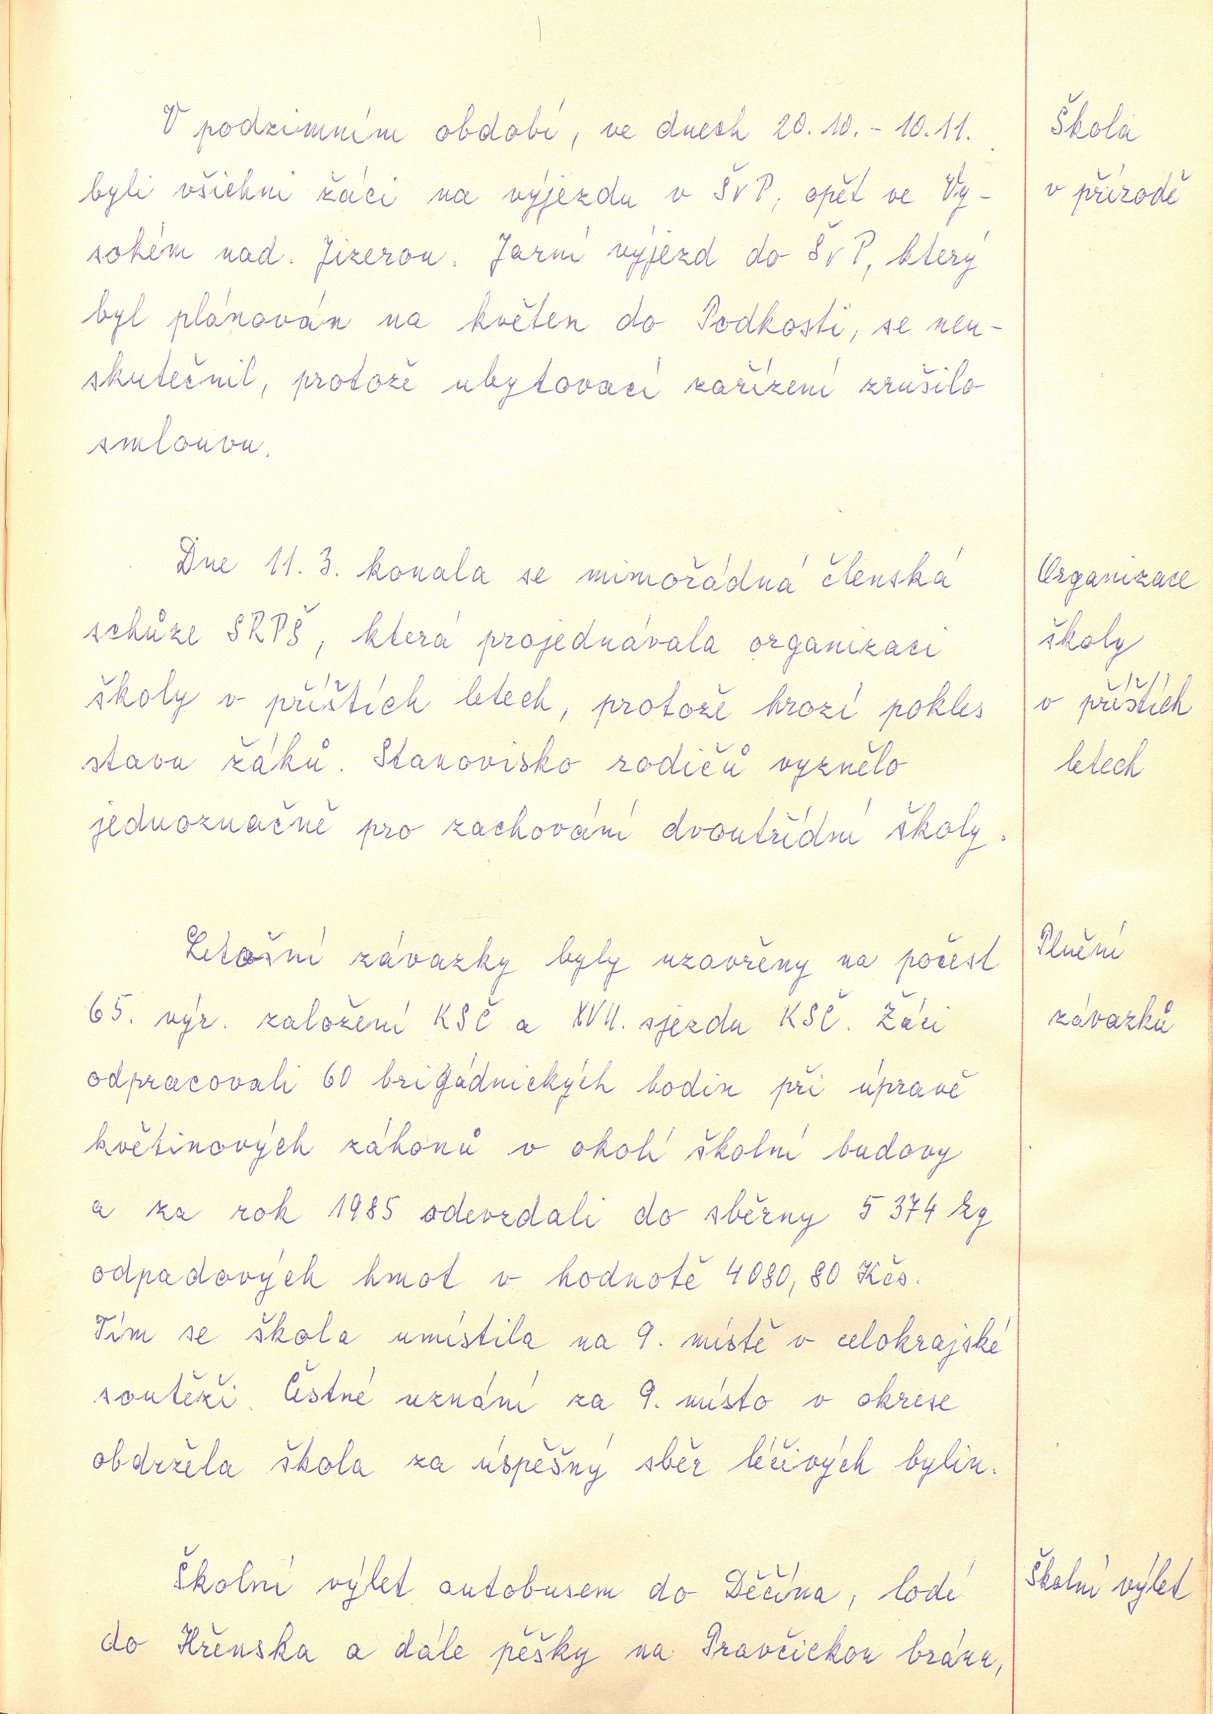 V podzimním období, ve dnech 20.10. - 10.11.
byli všichni žáci na výjezdu v ŠvP, opět ve Vy-
sokém nad. Jizerou. Jarní výjezd do ŠvP, který
byl plánován na květen do Podkosti, se neu-
skutečnil, protože ubytovací zařízení zrušilo
smlouvu.
Škola
v přírodě
Dne 11. 3. konala se mimořádná členská
schůze SRPŠ, která projednávala organizaci
školy v příštích letech, protože hrozí pokles
stavu žáků. Stanovisko rodičů vyznělo
jednoznačně pro zachování dvoutřídní školy.
Organizace
školy
v příštích
letech
Letošní závazky byly uzavřeny na počest
65. výr. založení KSČ a XVII. sjezdu KSČ. Žáci
odpracovali 60 brigádnických hodin při úpravě
květinových záhonů v okolí školní budovy
a za rok 1985 odevzdali do sběrny 5 374 kg
odpadových hmot v hodnotě 4080,80 Kčs.
Tím se škola umístila na 9. místě v celokrajské
soutěži. Čestné uznání za 9. místo v okrese
obdržela škola za úspěšný sběr léčivých bylin.
Plnění
závazků
Školní výlet autobusem do Děčína, lodí
do Hřenska a dále pěšky na Pravčickou bránu,
Školní výlet